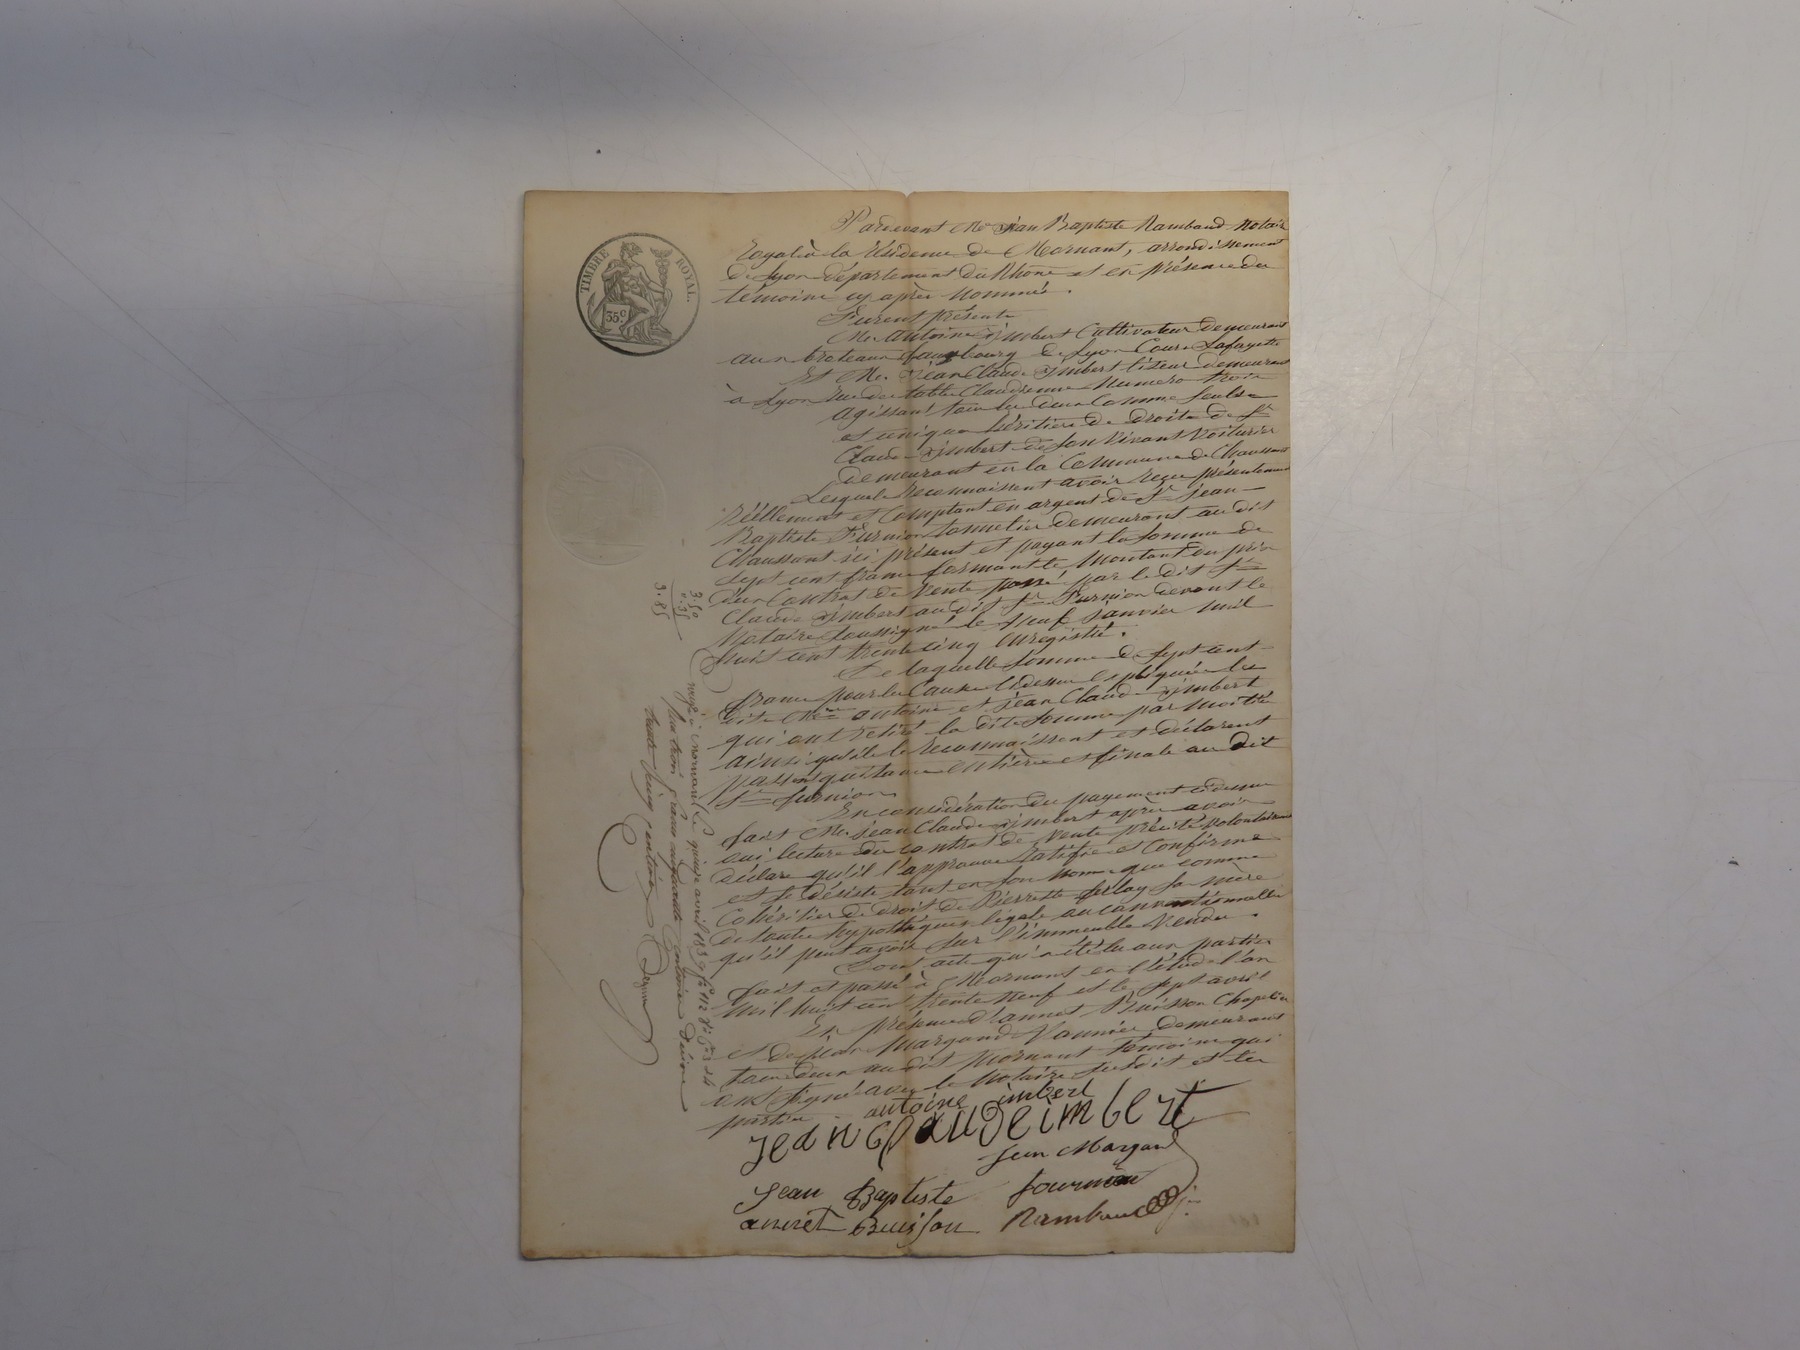 TIMBRE ROYAL.
35 c.
Pardevant Me Jean Baptiste Rambaud Notaire
Royal à la Résidence de Mornant, arrondissement
de Lyon département du Rhône et en présence des
témoins cy après Nommés.
Furent présents
Mr Antoine Imbert Cultivateur demeurant
aux broteaux faubourg de Lyon Cours Lafayette
Et Mr. Jean Claude Imbert liseur demeurant
à Lyon rue des table Claudienne Numero trois
agissant tous les deux Comme seuls
et unique héritiers de droits de Sr
Claude Imbert de son vivant Voiturier
demeurant en la Commune de Chaussant
Lesquels Reconnaissent avoir reçu présentement
Réellement et Comptant en argent de Sr Jean
Baptiste Furnion tonnelier demeurant au dit
Chaussant ici présent et payant la somme de
Sept cent francs formant le Montant du prix
d'un Contrat de Vente passé par le dit Sr
Claude Imbert au dit Sr Furnion devant le
Notaire soussigné le neuf Janvier mil
huit cent trente cinq Enregistré.
De laquelle somme de sept cent
francs pour les Causes Cidessus expliquées les
dits Mrs antoine et Jean Claude Imbert
qui ont retiré la dite somme par moitié
ainsi qu'ils le Reconnaissent et déclarent
passent quittance entière et finale au dit
Sr furnion
En considération du payement cidessus
fait Mr Jean Claude Imbert après avoir
oui lecture du contrat de Vente précité volontairement
déclare qu'il l'approuve Ratifie et Confirme
et se désiste tant en son Nom que comme
Cohéritier de droit de Pierrette ferlay sa mère
de toutes hypothèques légale ou conventionnelle
qu'il peut avoir sur l'immeuble Vendu.
Dont acte qui a été lu aux parties
fait et passé à Mornant en l'étude l'an
Mil huit cent trente Neuf et le sept avril
En présence d'annet Buisson Chapelier
et de Jean Margand Vannier demeurant
tous deux au dit Mornant témoins qui
ont signé avec le Notaire susdit et les
parties.
antoine imbert
Jean Claude imbert
Jean Margand
Jean Baptiste fournion
annet Buisson Rambaud
3.50
0.35
3.85
à mornant le quinze avril 1839 fo 112
trois francs cinquante centimes
trente cinq centimes